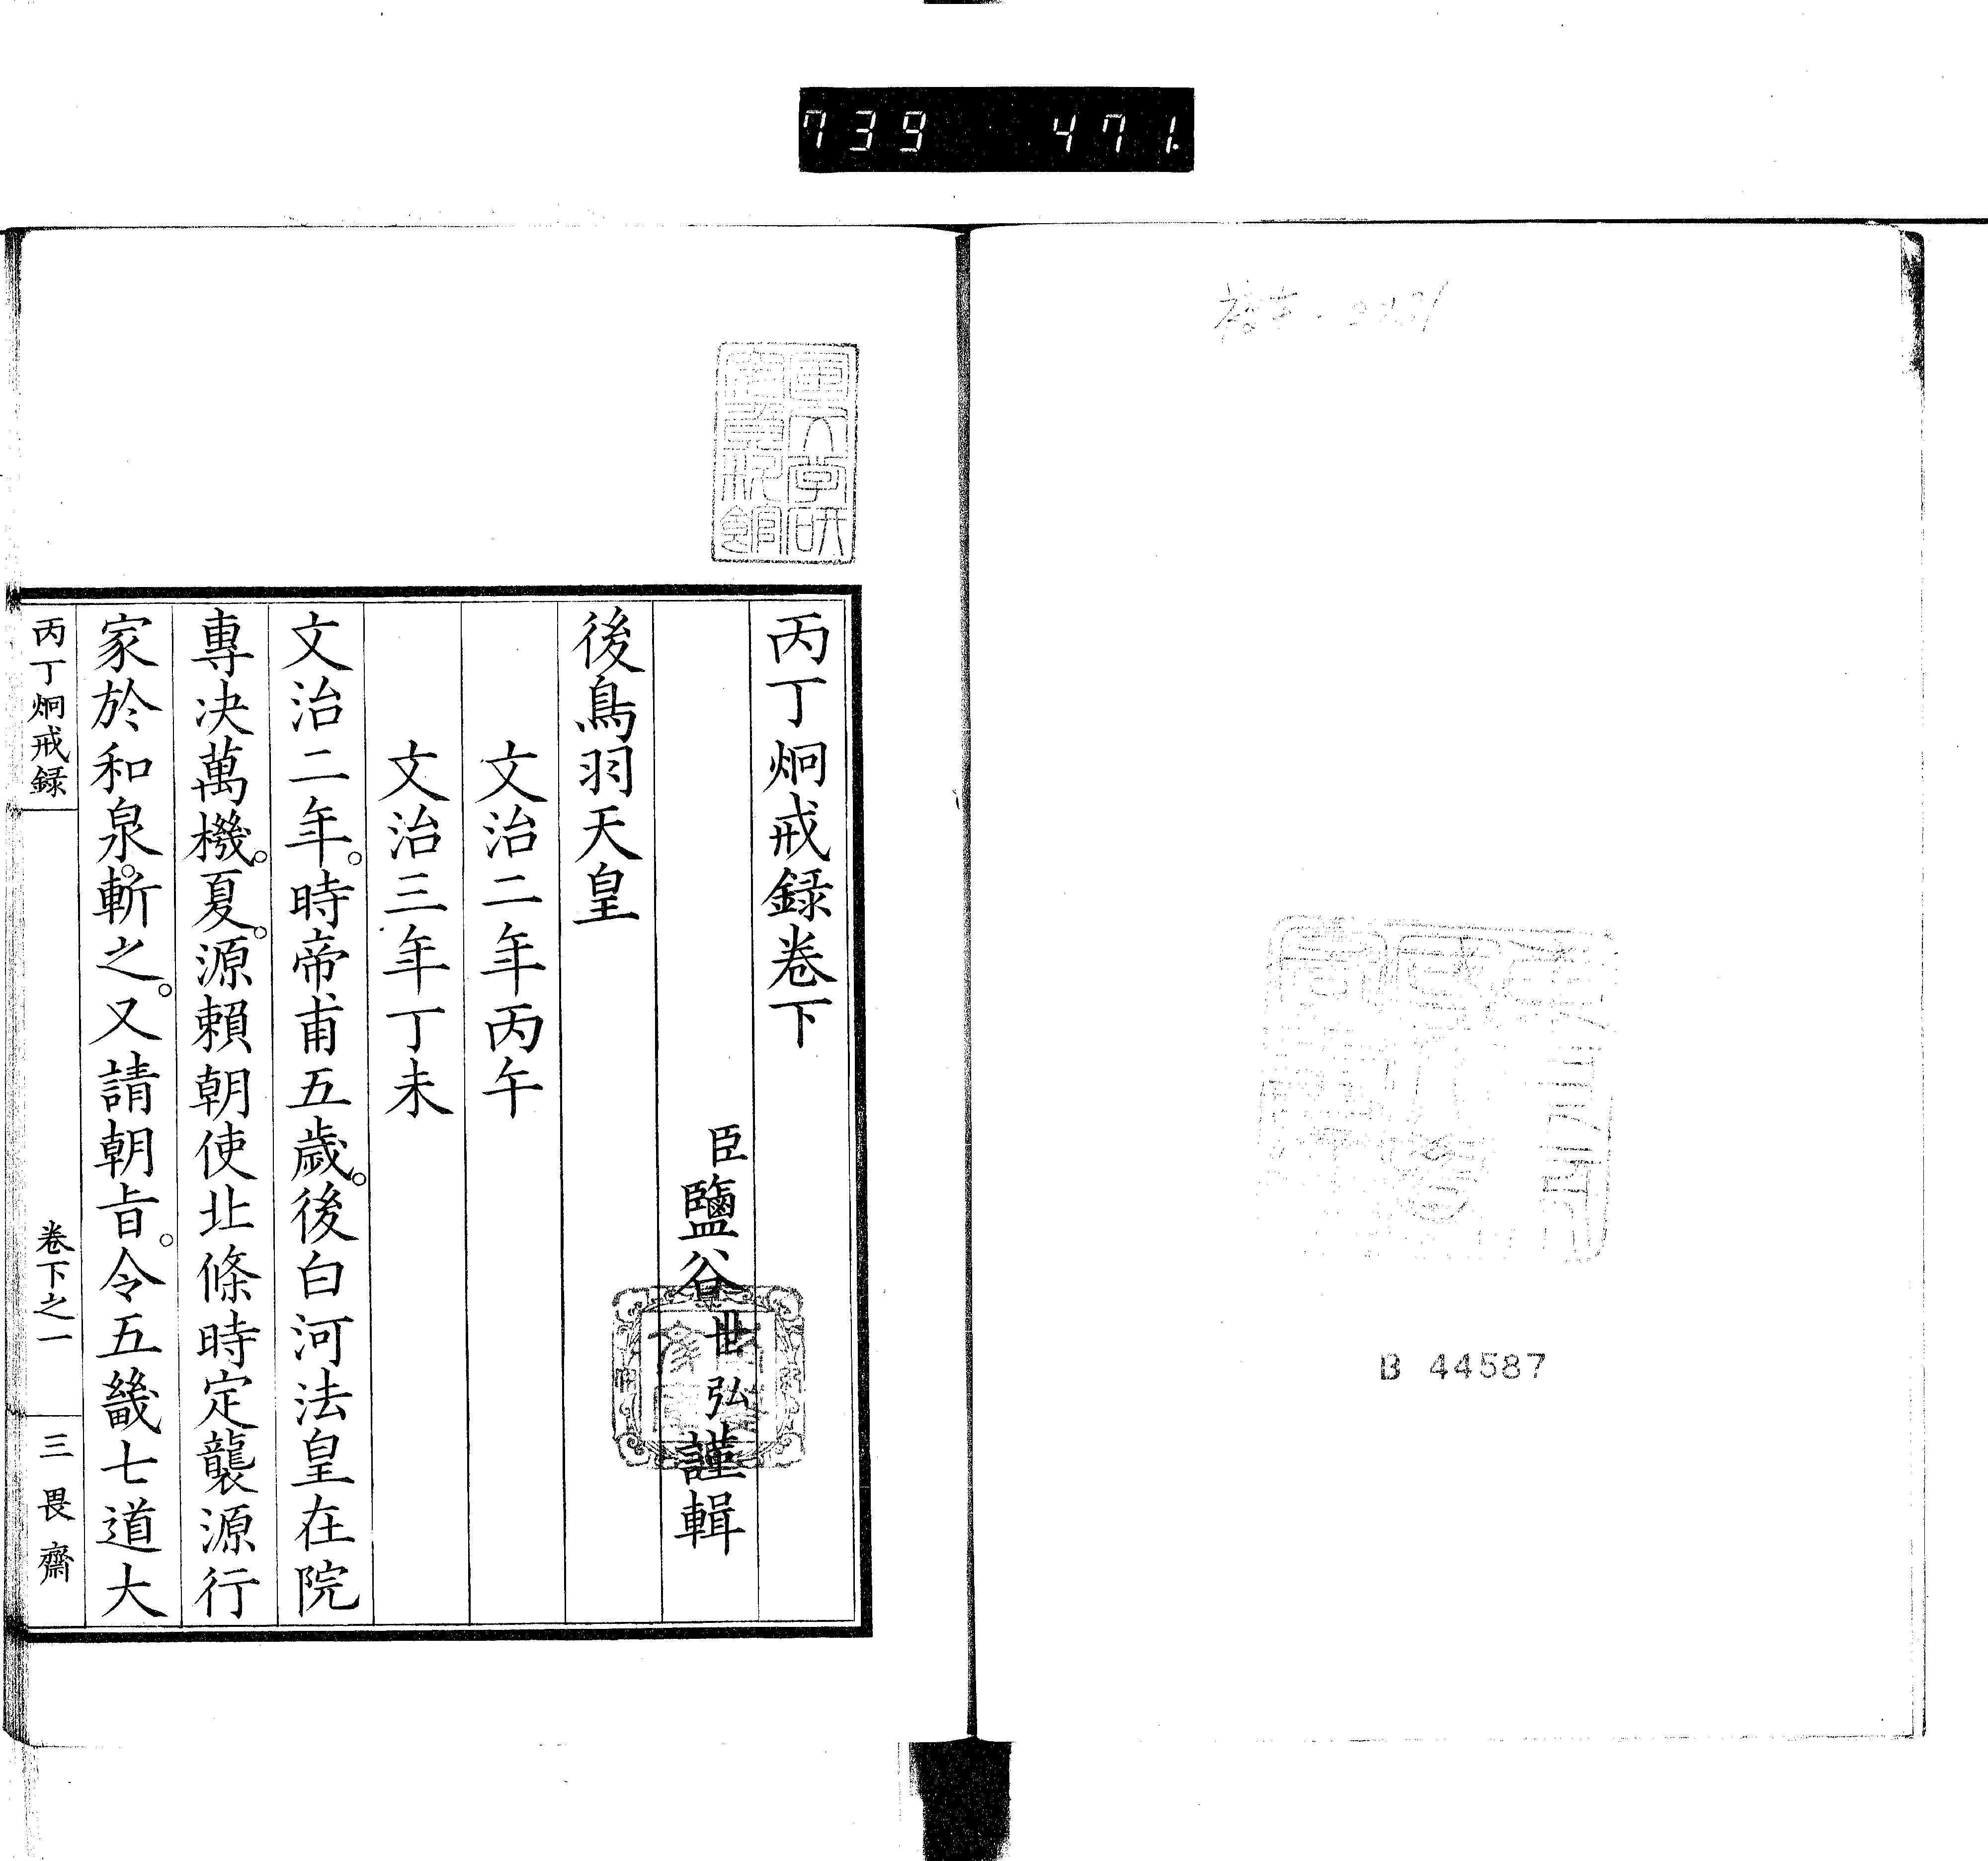 739 471.
B 44587
丙丁炯戒録卷下
臣鹽谷世弘謹輯
後鳥羽天皇
文治二年丙午
文治三年丁未
文治二年。時帝甫五歳。後白河法皇在院
專决萬機。夏。源賴朝使北條時定襲源行
家於和泉。斬之。又請朝旨。令五畿七道大
丙丁炯戒録
卷下之一
三畏齋